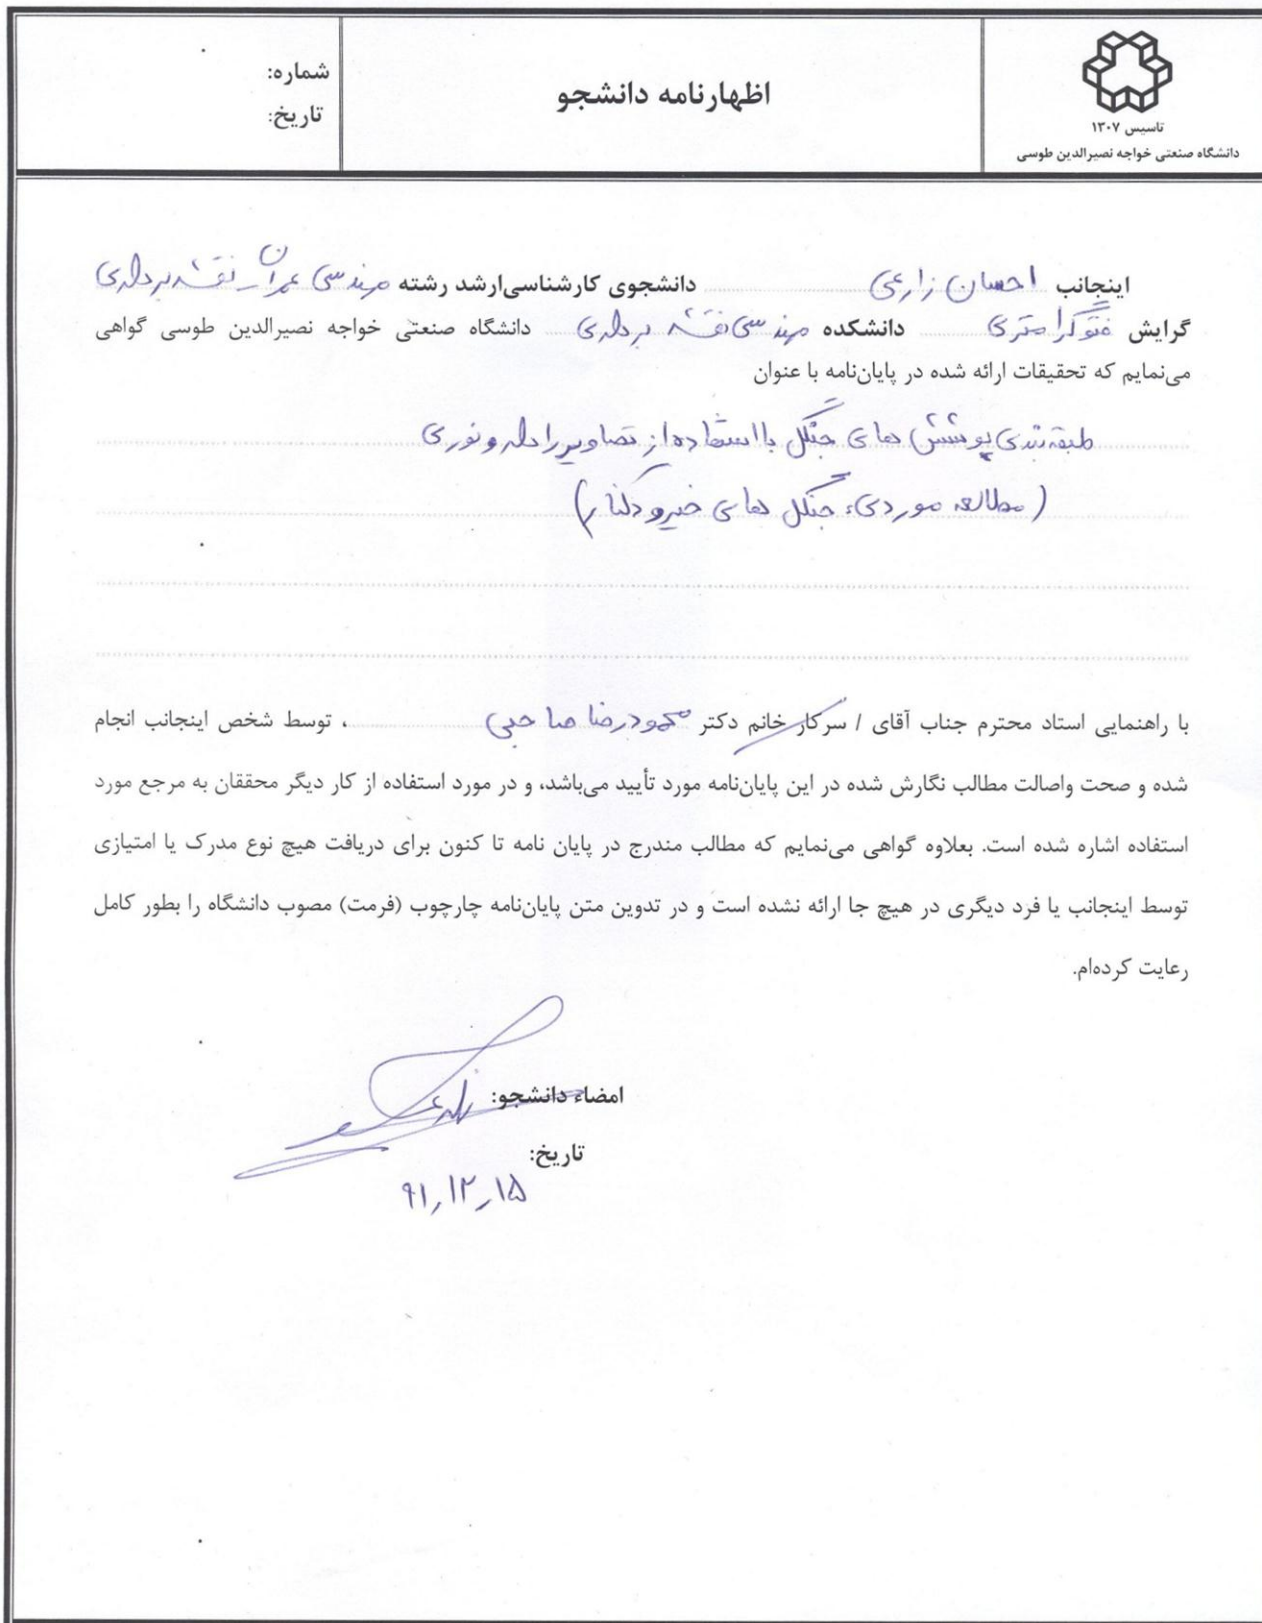 تاسیس ۱۳۰۷
دانشگاه صنعتی خواجه نصیرالدین طوسی
اظهارنامه دانشجو
شماره:
تاریخ:
اینجانب احسان زارعی دانشجوی کارشناسی‌ارشد رشته مهندسی عمران_نقشه برداری
گرایش فتوگرامتری دانشکده مهندسی نقشه برداری دانشگاه صنعتی خواجه نصیرالدین طوسی گواهی
می‌نمایم که تحقیقات ارائه شده در پایان‌نامه با عنوان
طبقه بندی پوشش های جنگل با استفاده از تصاویر رادار و نوری
(مطالعه موردی: جنگل های خیرودکنار)
با راهنمایی استاد محترم جناب آقای / سرکار خانم دکتر محمودرضا صاحبی ، توسط شخص اینجانب انجام
شده و صحت واصالت مطالب نگارش شده در این پایان‌نامه مورد تأیید می‌باشد، و در مورد استفاده از کار دیگر محققان به مرجع مورد
استفاده اشاره شده است. بعلاوه گواهی می‌نمایم که مطالب مندرج در پایان نامه تا کنون برای دریافت هیچ نوع مدرک یا امتیازی
توسط اینجانب یا فرد دیگری در هیچ جا ارائه نشده است و در تدوین متن پایان‌نامه چارچوب (فرمت) مصوب دانشگاه را بطور کامل
رعایت کرده‌ام.
امضاء دانشجو: زارعی
تاریخ:
۹۱,۱۲,۱۵